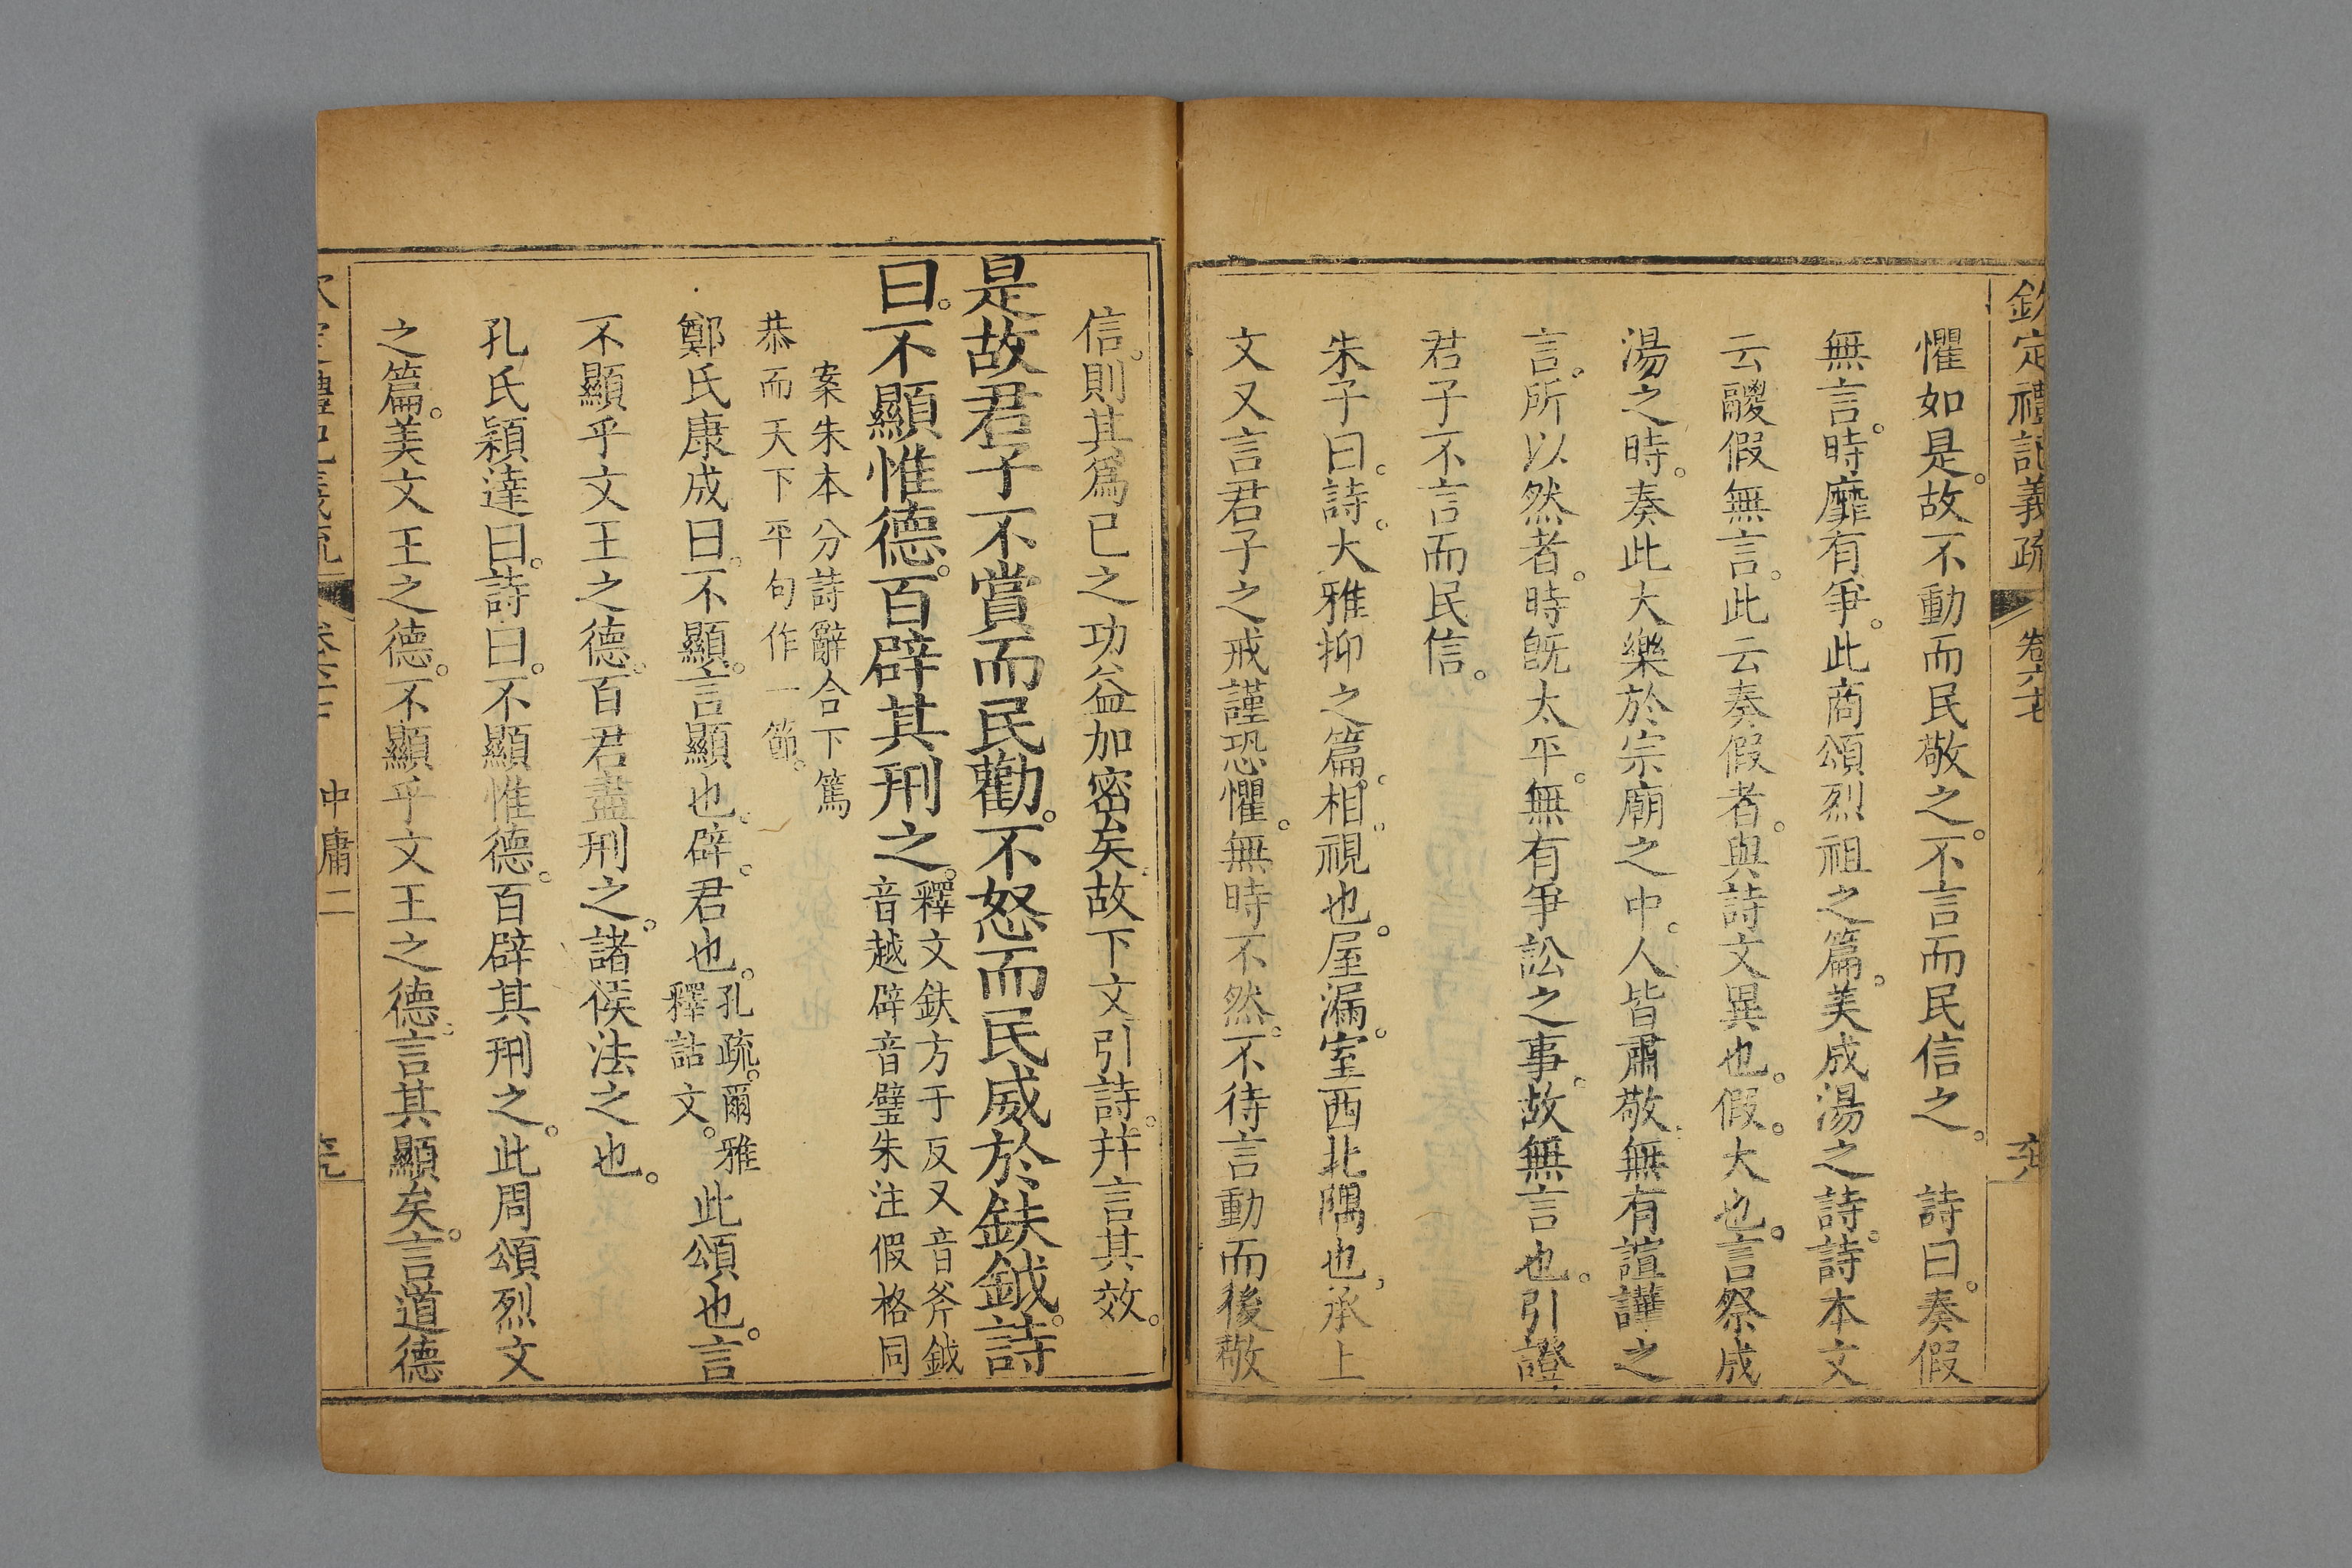 欽定禮記義疏 卷六七
懼如是。故不動而民敬之。不言而民信之。 詩曰。奏假
無言。時靡有爭。此商頌烈祖之篇。美成湯之詩。詩本文
云鬷假無言。此云奏假者。與詩文異也。假。大也。言祭成
湯之時。奏此大樂於宗廟之中。人皆肅敬。無有諠譁之
言。所以然者。時旣太平。無有爭訟之事。故無言也。引證
君子不言而民信。
朱子曰。詩。大雅抑之篇。相。視也。屋漏。室西北隅也。承上
文又言君子之戒謹恐懼。無時不然。不待言動而後敬
信。則其爲已之功益加密矣。故下文引詩。幷言其效。
是故君子不賞而民勸。不怒而民威於鈇鉞。詩
曰。不顯惟德。百辟其刑之。釋文鈇方于反又音斧鉞
音越辟音璧朱注假格同
案朱本分詩辭合下篤
恭而天下平句作一節。
鄭氏康成曰。不顯。言顯也。辟。君也。孔疏。爾雅
釋詁文。此頌也。言
不顯乎文王之德。百君盡刑之。諸侯法之也。
孔氏穎達曰。詩曰。不顯惟德。百辟其刑之。此周頌烈文
之篇。美文王之德。不顯乎文王之德。言其顯矣。言道德
中庸二